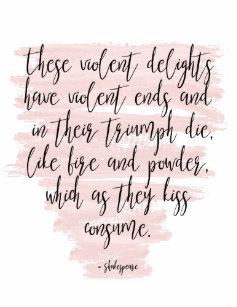 these violent delights
have violent ends and
in their triumph die,
like fire and powder,
which as they kiss
consume.
- Shakespeare